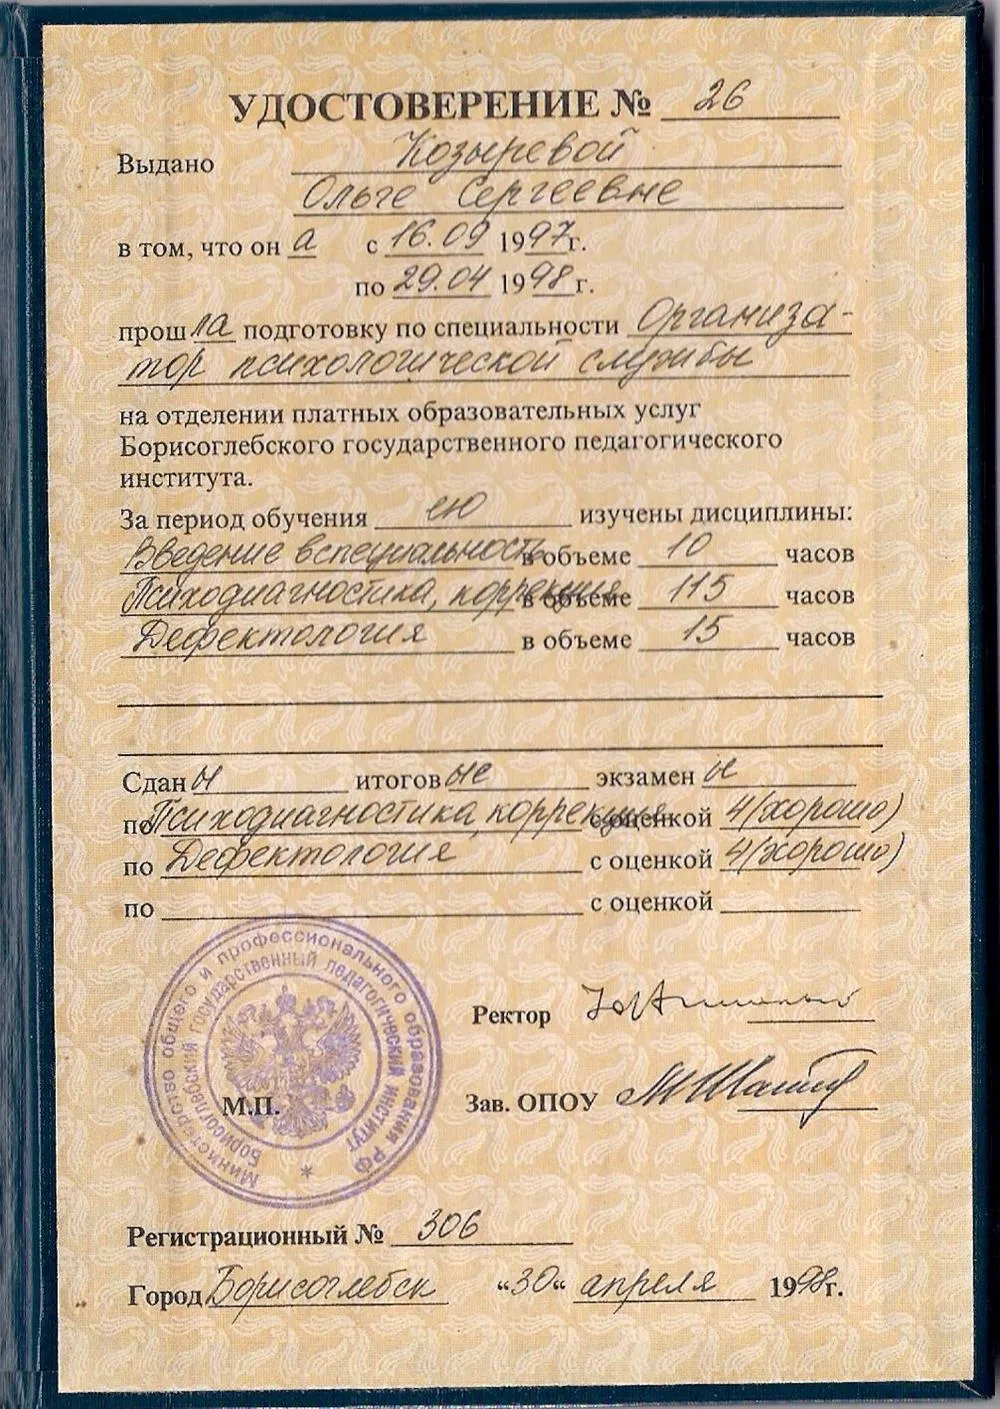 УДОСТОВЕРЕНИЕ № 26
Выдано Козыревой
Ольге Сергеевне
в том, что он а с 16.09 1997г.
по 29.04 1998г.
прошла подготовку по специальности Организа-
тор психологической службы
на отделении платных образовательных услуг
Борисоглебского государственного педагогического
института.
За период обучения ею изучены дисциплины:
Введение в специальность в объеме 10 часов
Психодиагностика, коррекция в объеме 115 часов
Дефектология в объеме 15 часов
Сданы итоговые экзамен ы
по Психодиагностика, коррекция с оценкой 4(хорошо)
по Дефектология с оценкой 4(хорошо)
по с оценкой
Министерство общего и профессионального образования РФ
Борисоглебский государственный педагогический институт
Ректор
М.П. Зав. ОПОУ
Регистрационный № 306
Город Борисоглебск “30“ апреля 1998г.